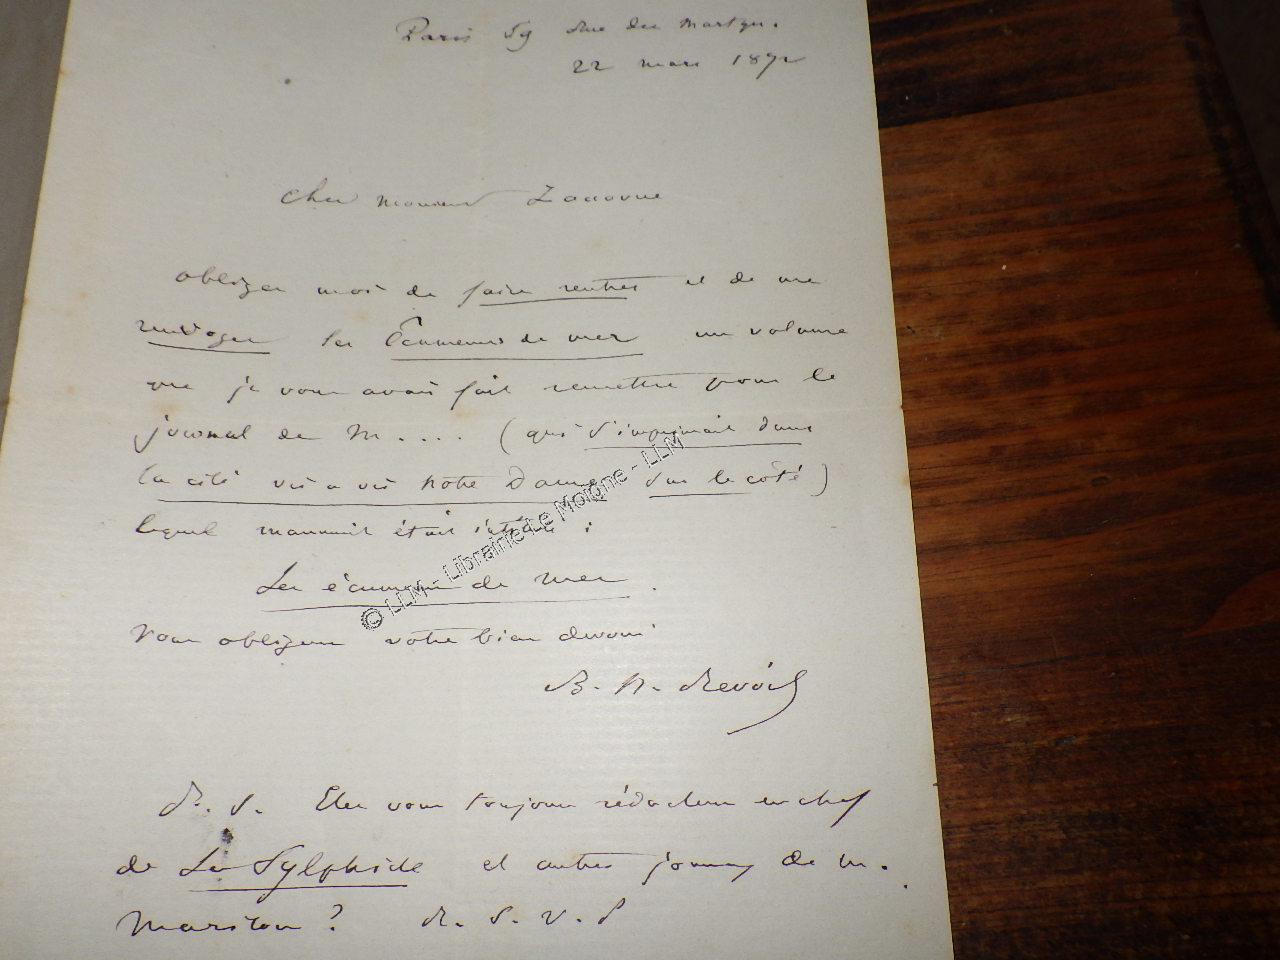 Paris 59 Rue des Martyrs.
22 mars 1872
Cher monsieur Zaccone
obligez moi de faire rentrer et de me
renvoyer les Écumeurs de mer un volume
que je vous avais fait remettre pour le
journal de M.... (qui s'imprimait dans
la cité vis a vis Notre Dame, sur le coté)
lequel manuscrit était intitulé :
Les écumeurs de mer.
Vous obligerez votre bien dévoué
B. H. Revoil
P. S. Etes vous toujours rédacteur en chef
de La Sylphide et autres journaux de M.
Mariton ? R. S. V. P
© LLM - Librairie Le Moigne - LLM